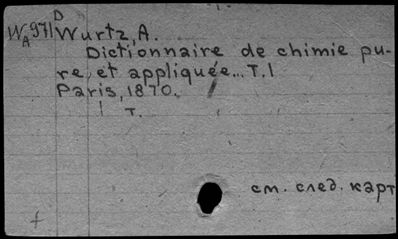 D
WA 971 Wurtz, A.
Dictionnaire de chimie pu-
re et appliquée... T. I
Paris, 1870.
1 т.
см. след. карт